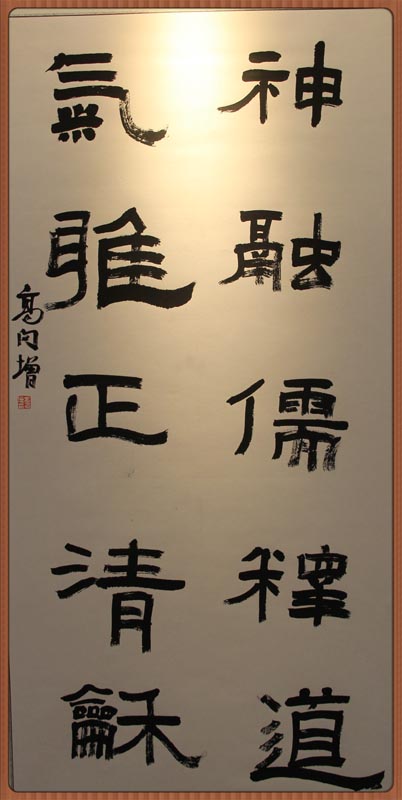 神融儒釋道
氣雅正清龢
高问增